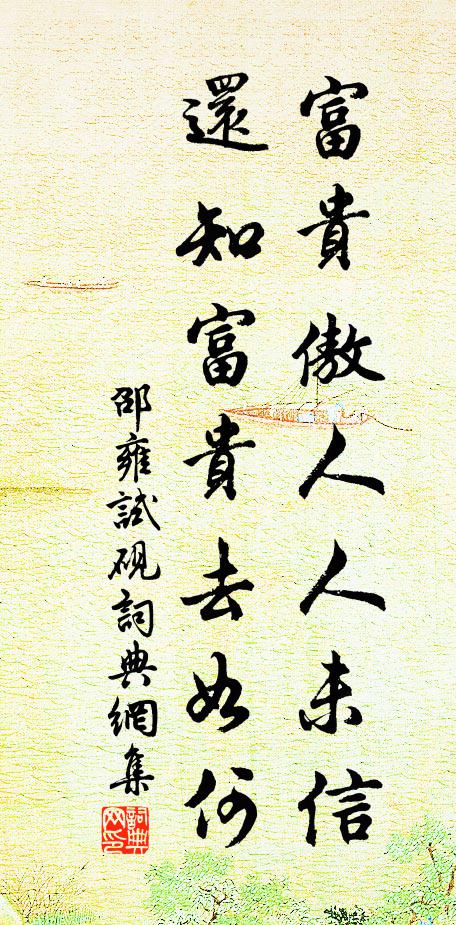 富貴傲人人未信
還知富貴去如何
邵雍試硯詞典網集
詞典
网印